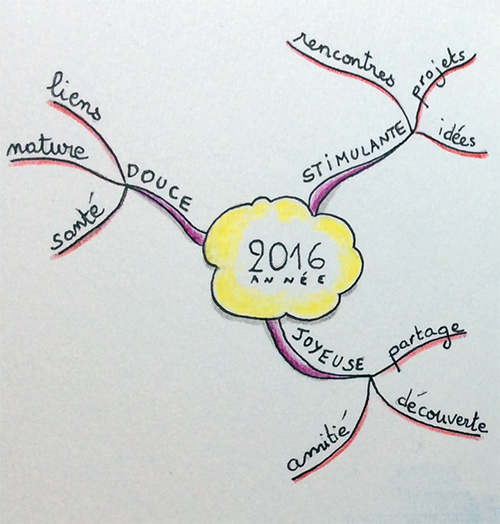 2016
ANNÉE
STIMULANTE
rencontres
projets
idées
JOYEUSE
partage
découverte
amitié
DOUCE
santé
nature
liens